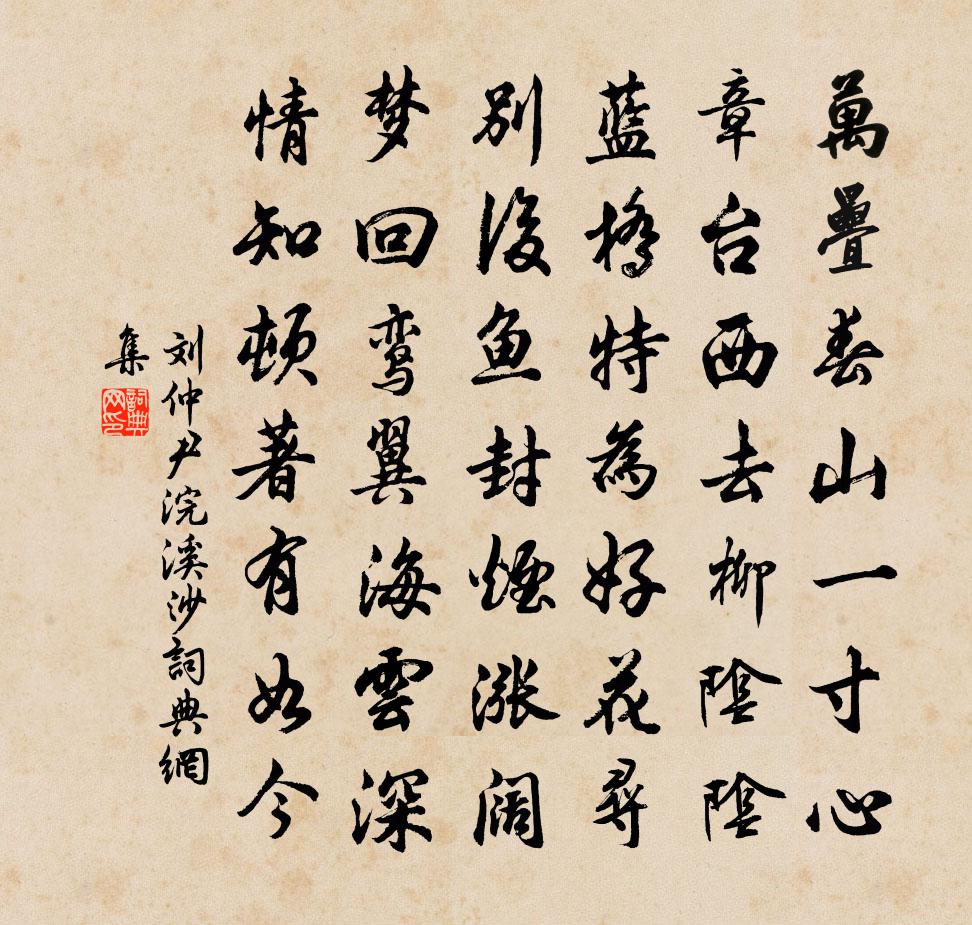 萬疊春山一寸心
章台西去柳陰陰
藍橋特為好花尋
別後魚封煙漲闊
梦回鸾翼海雲深
情知頓著有如今
刘仲尹浣溪沙詞典網
集
詞典网印